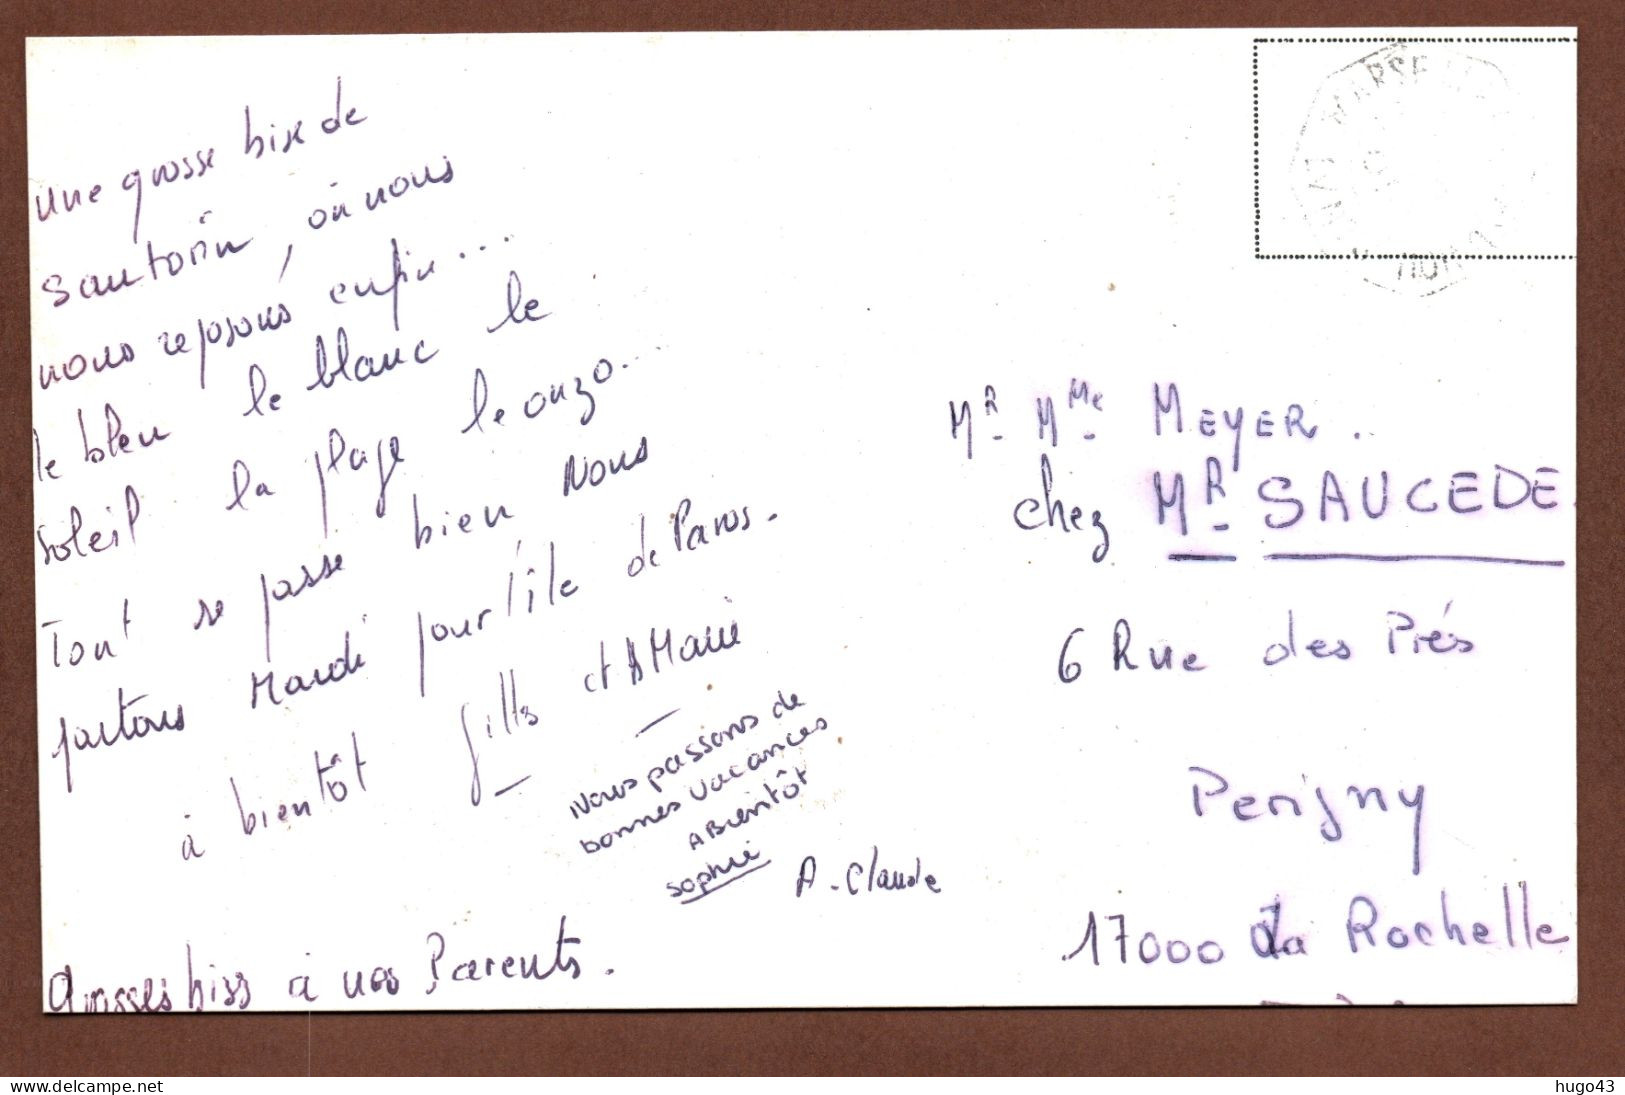 une grosse bise de
Santorin, où nous
nous reposons enfin...
le bleu le blanc le
soleil la plage le ouzo...
Tout se passe bien Nous
partons Mardi pour l'île de Paros.
à bientôt Gilles et A Marie
Nous passons de
bonnes vacances
A Bientôt
Sophie
A. Claude
Grosses bises à nos Parents.
MARSEILLE
Mr Mme MEYER.
chez Mr SAUCEDE
6 Rue des Prés
Perigny
17000 La Rochelle
www.delcampe.net
hugo43